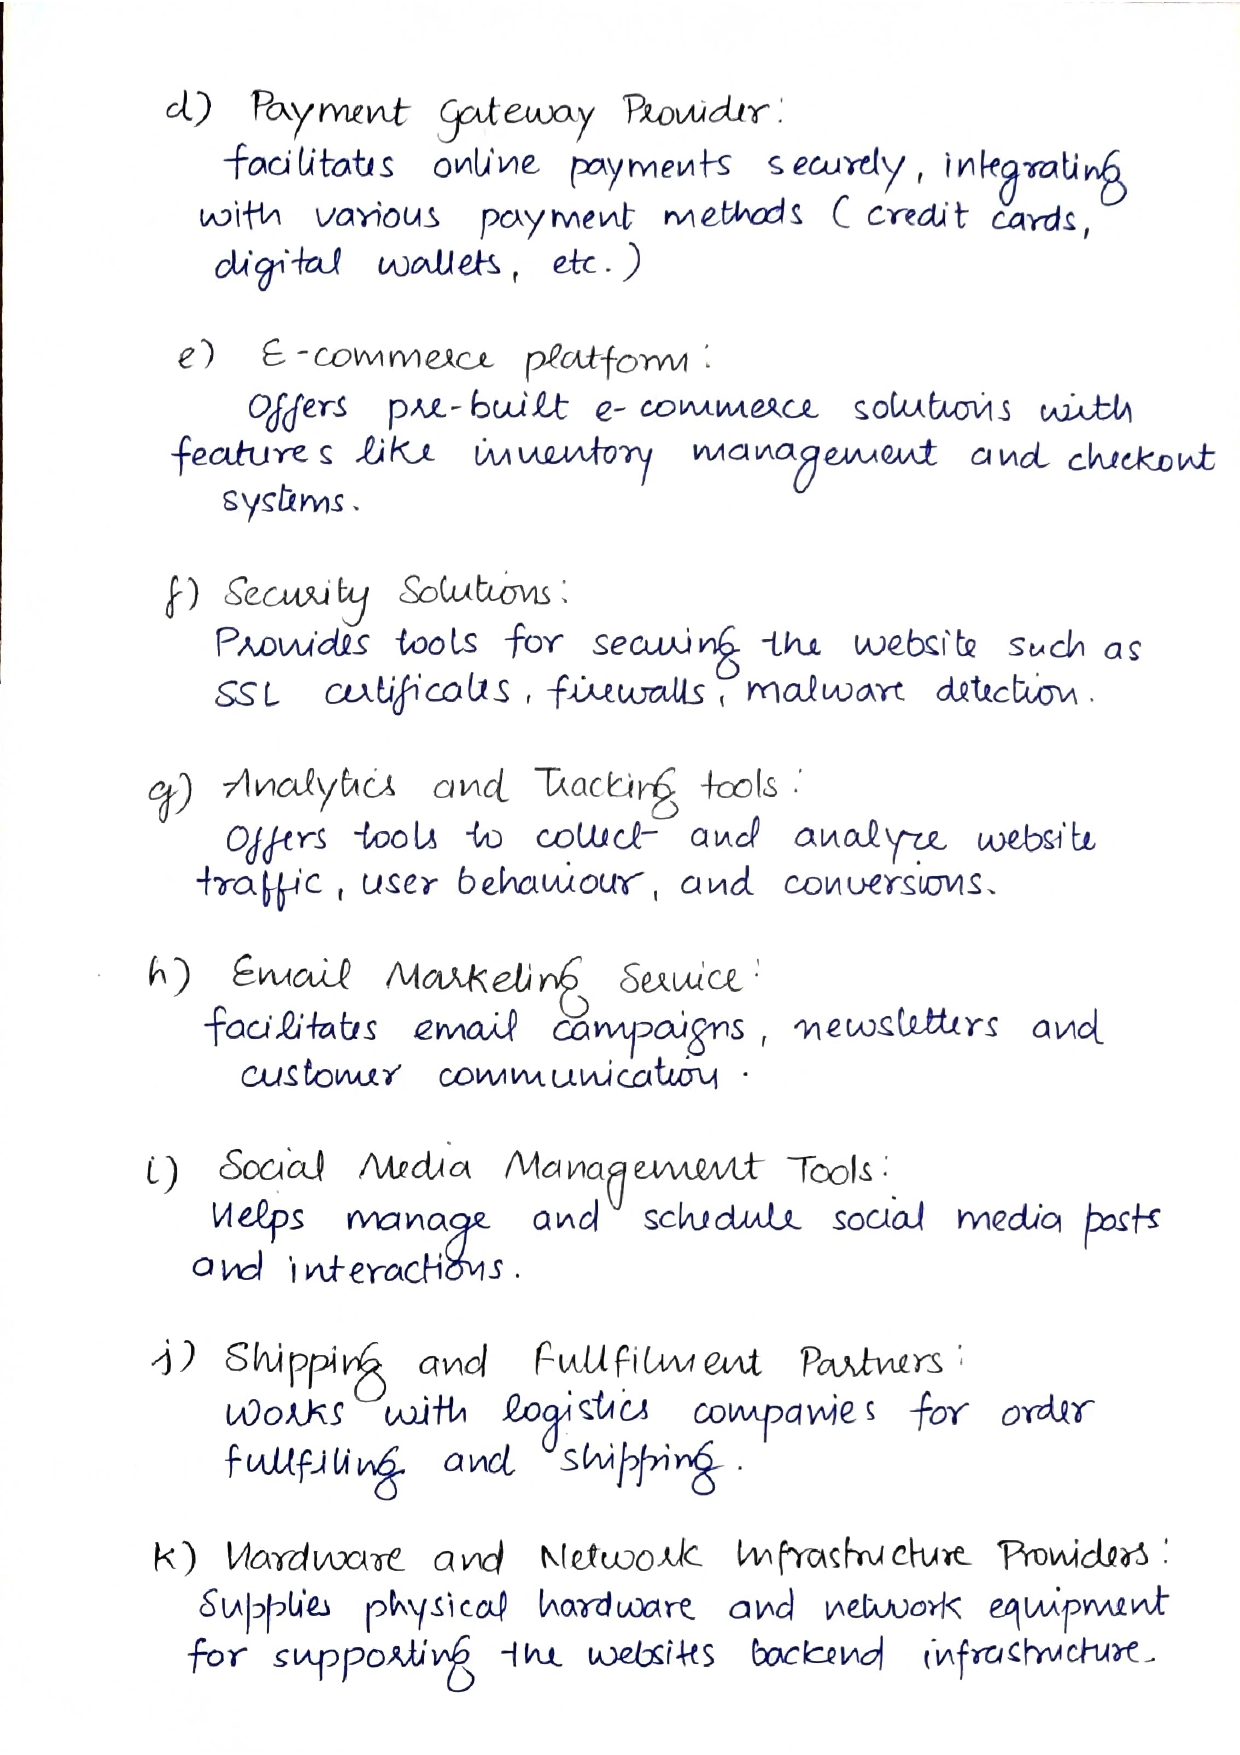 d) Payment Gateway Provider:
facilitates online payments securely, integrating
with various payment methods (credit cards,
digital wallets, etc.)
e) E-commerce platform:
Offers pre-built e-commerce solutions with
features like inventory management and checkout
systems.
f) Security Solutions:
Provides tools for securing the website such as
SSL certificates, firewalls, malware detection.
g) Analytics and Tracking tools:
Offers tools to collect and analyze website
traffic, user behaviour, and conversions.
h) Email Marketing Service:
facilitates email campaigns, newsletters and
customer communication.
i) Social Media Management Tools:
Helps manage and schedule social media posts
and interactions.
j) Shipping and Fullfilment Partners:
Works with logistics companies for order
fullfiling and shipping.
k) Hardware and Network Infrastructure Providers:
Supplies physical hardware and network equipment
for supporting the websites backend infrastructure.